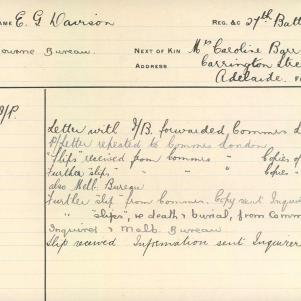 NAME E. G. Davison REG. &C 27th Batt
ourne Bureau. NEXT OF KIN Mrs Caroline Barr
ADDRESS Carrington Stre
Adelaide.
Letter with I/B. forwarded, Commes L
P/Letter repeated to Commes London
"Slips" received from Commes " Copies of
Further "slips" " " " Copies "
also Melb. Bureau
Further "slip" from Commes. Copy sent Inquir
" "slips", re death & burial, from Comm
Inquirer & Melb. Bureau
Slip received Information sent Inquirer